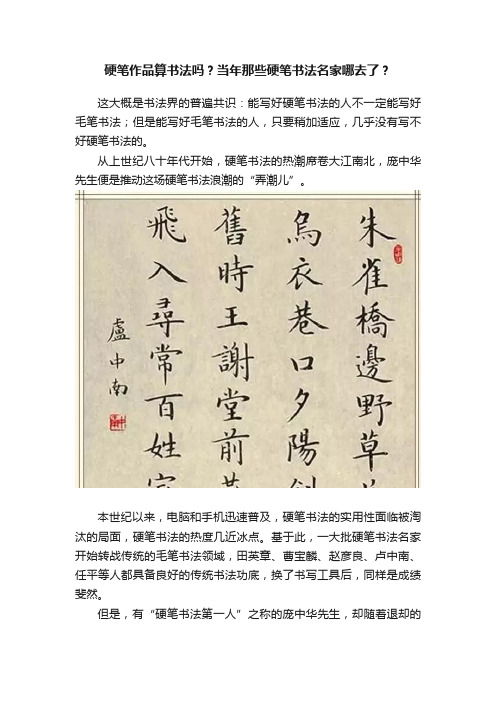 硬笔作品算书法吗？当年那些硬笔书法名家哪去了？
这大概是书法界的普遍共识：能写好硬笔书法的人不一定能写好
毛笔书法；但是能写好毛笔书法的人，只要稍加适应，几乎没有写不
好硬笔书法的。
从上世纪八十年代开始，硬笔书法的热潮席卷大江南北，庞中华
先生便是推动这场硬笔书法浪潮的“弄潮儿”。
朱雀橋邊野草
烏衣巷口夕陽
舊時王謝堂前
飛入尋常百姓
盧中南
本世纪以来，电脑和手机迅速普及，硬笔书法的实用性面临被淘
汰的局面，硬笔书法的热度几近冰点。基于此，一大批硬笔书法名家
开始转战传统的毛笔书法领域，田英章、曹宝麟、赵彦良、卢中南、
任平等人都具备良好的传统书法功底，换了书写工具后，同样是成绩
斐然。
但是，有“硬笔书法第一人”之称的庞中华先生，却随着退却的